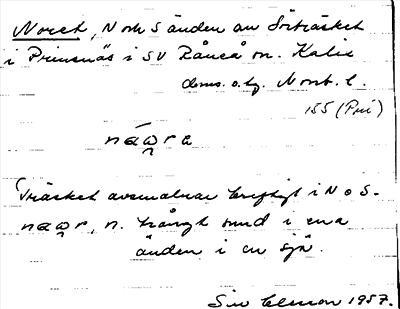 Noret, N och S änden av Sörträsket
i Prinsnäs i SV Råneå sn. Kalix
doms. o. tg. Norrb. l.
155 (Pri)
Träsket avsmalnar kraftigt i N o S.
n. trångt sund i ena
änden i en sjö.
1957.